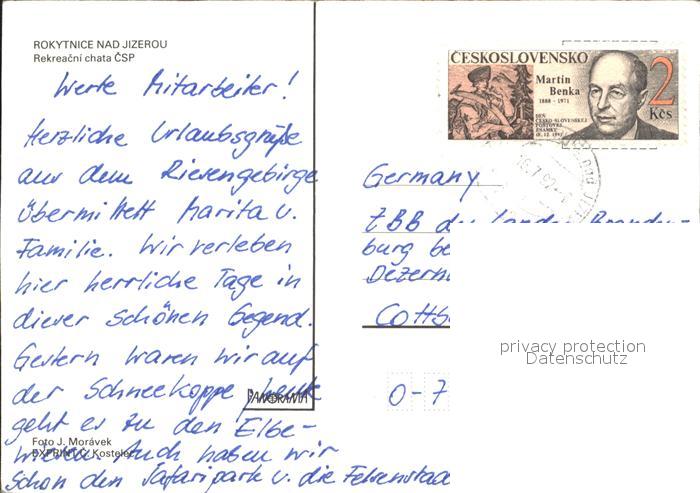 ROKYTNICE NAD JIZEROU
Rekreační chata ČSP
Werte Mitarbeiter!
Herzliche Urlaubsgrüße
aus dem Riesengebirge
übermittelt Marita u.
Familie. Wir verleben
hier herrliche Tage in
dieser schönen Gegend.
Gestern waren wir auf
der Schneekoppe, heute
geht es zu den Elbe-
wiesen. Auch haben wir
schon den Safaripark u. die Felsenstad
Foto J. Morávek
PANORAMA
ČESKOSLOVENSKO
Martin
Benka
1888 - 1971
DEŇ
ČESKO-SLOVENSKEJ
POŠTOVEJ
ZNÁMKY
18. 12. 1992
2
Kčs
Germany
ZBB des Landes Branden-
burg be
Dezern
Cottb
O-7
privacy protection
Datenschutz